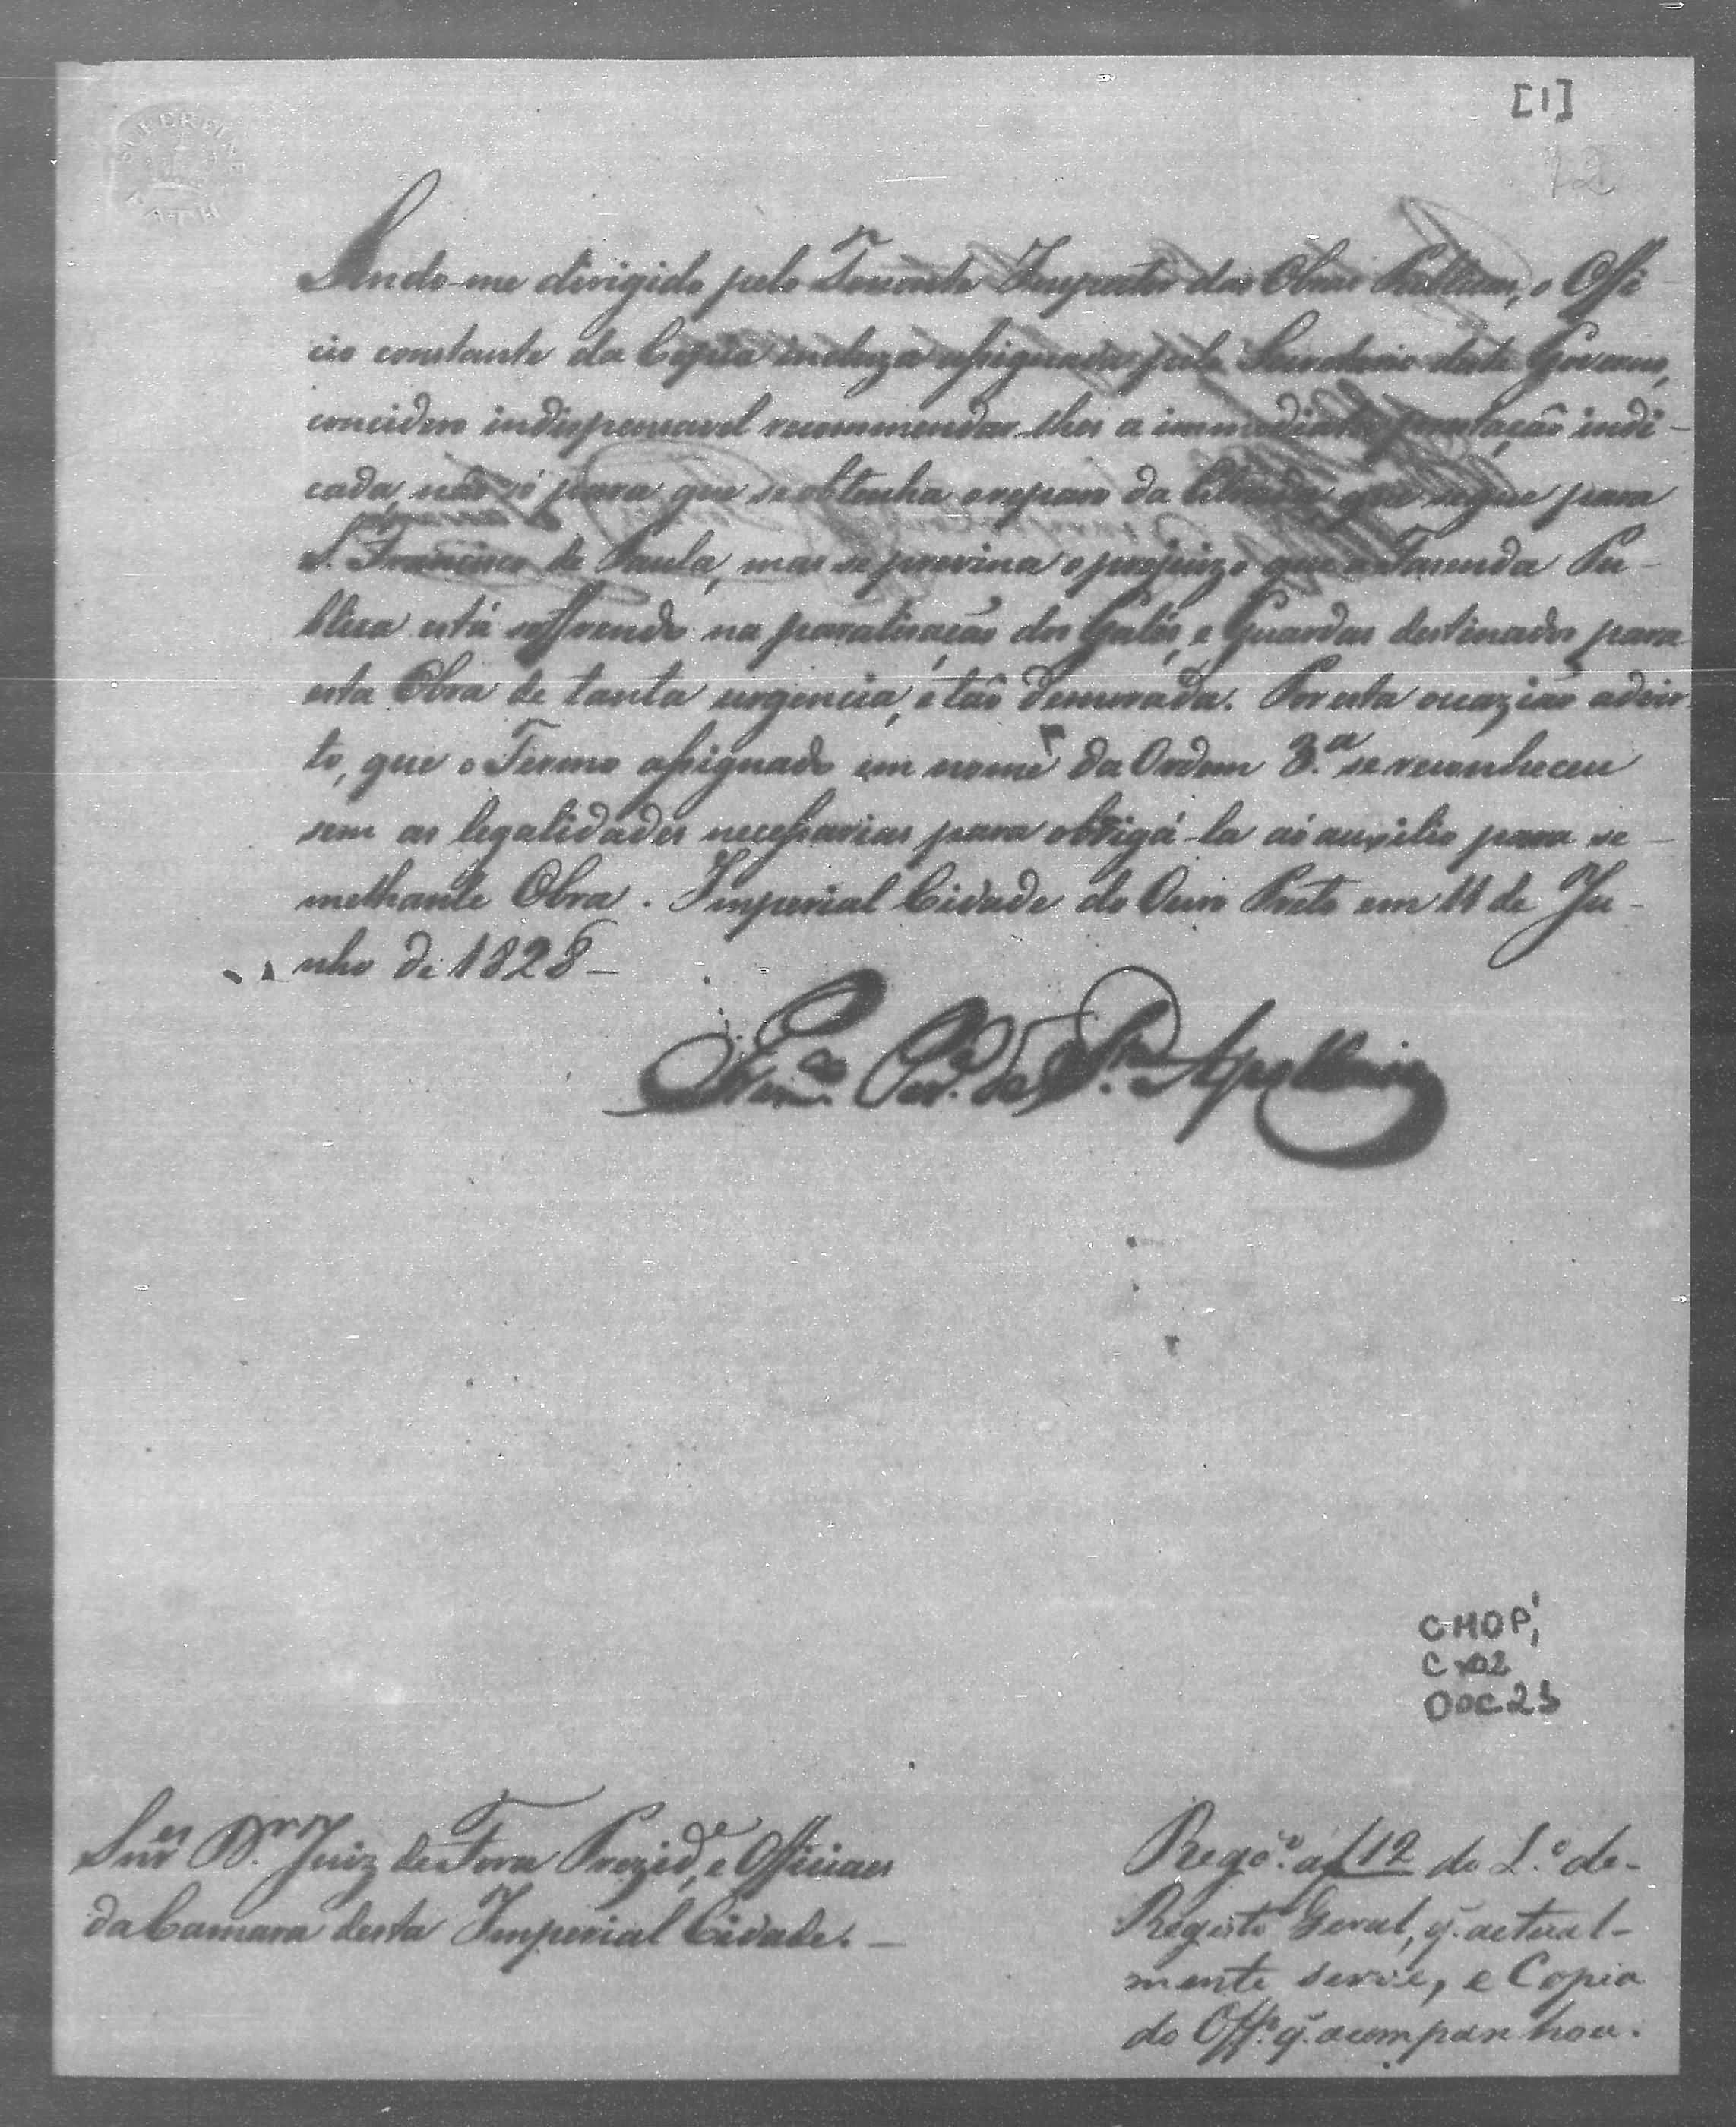 [1]
72
SUPERFINE
BATH
Sendo-me dirigido pelo Tenente Inspector das Obras Publicas, o Offi
cio constante da Copia incluza assignada pelo Secretario deste Governo,
concidero indispensavel recommendar-lhes a immediata prestação indi-
cada, não só para que se obtenha o reparo da Estrada que segue para
S. Francisco de Paula, mas se previna o prejuizo que a Fazenda Pu-
blica está soffrendo na paralisação dos Galés, e Guardas destinados para
esta Obra de tanta urgencia, e tão demorada. Por esta occazião advir
to, que o Termo assignado em nome da Ordem 3.ª se reconheceu
sem as legalidades necessarias para obrigá-la ao auxilio para se-
melhante Obra. Imperial Cidade do Ouro Preto em 11 de Ju-
nho de 1828 -
CMOP,
Cx02
DOC 23
Snres Dr. Juiz de Fora Prezid.e, e Officiaes
da Camara desta Imperial Cidade. -
Reg.º a f 112 do L.º de-
Registo Geral, q. actual-
mente serve, e Copia
do Off.º q. acompanhou.